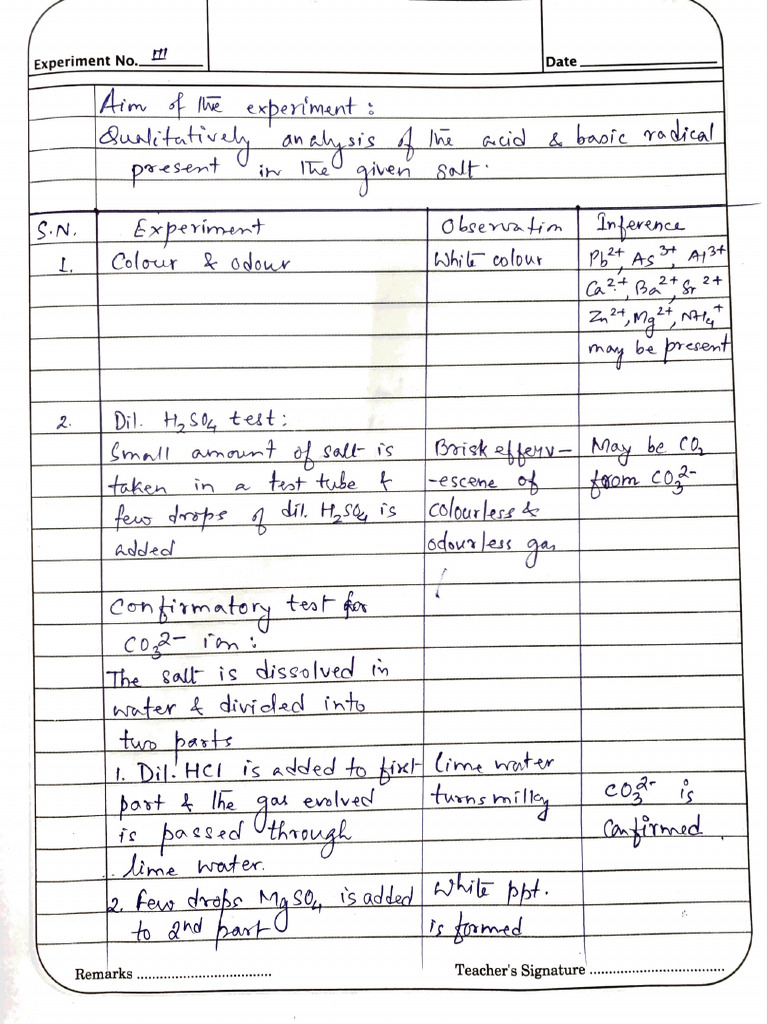 Experiment No. III
Date
Aim of the experiment :
Qualitatively analysis of the acid & basic radical
present in the given salt.
S.N. Experiment Observation Inference
1. Colour & odour White colour Pb²⁺, As³⁺, Al³⁺
Ca²⁺, Ba²⁺, Sr²⁺
Zn²⁺, Mg²⁺, NH₄⁺
may be present
2. Dil. H₂SO₄ test :
Small amount of salt is Brisk efferv- May be CO₂
taken in a test tube & -escene of from CO₃²⁻
few drops of dil. H₂SO₄ is colourless &
added odourless gas
Confirmatory test for
CO₃²⁻ ion :
The salt is dissolved in
water & divided into
two parts
1. Dil. HCl is added to first lime water
part & the gas evolved turns milky CO₃²⁻ is
is passed through confirmed.
lime water.
2. Few drops MgSO₄ is added White ppt.
to 2nd part is formed
Remarks ................................ Teacher's Signature ................................